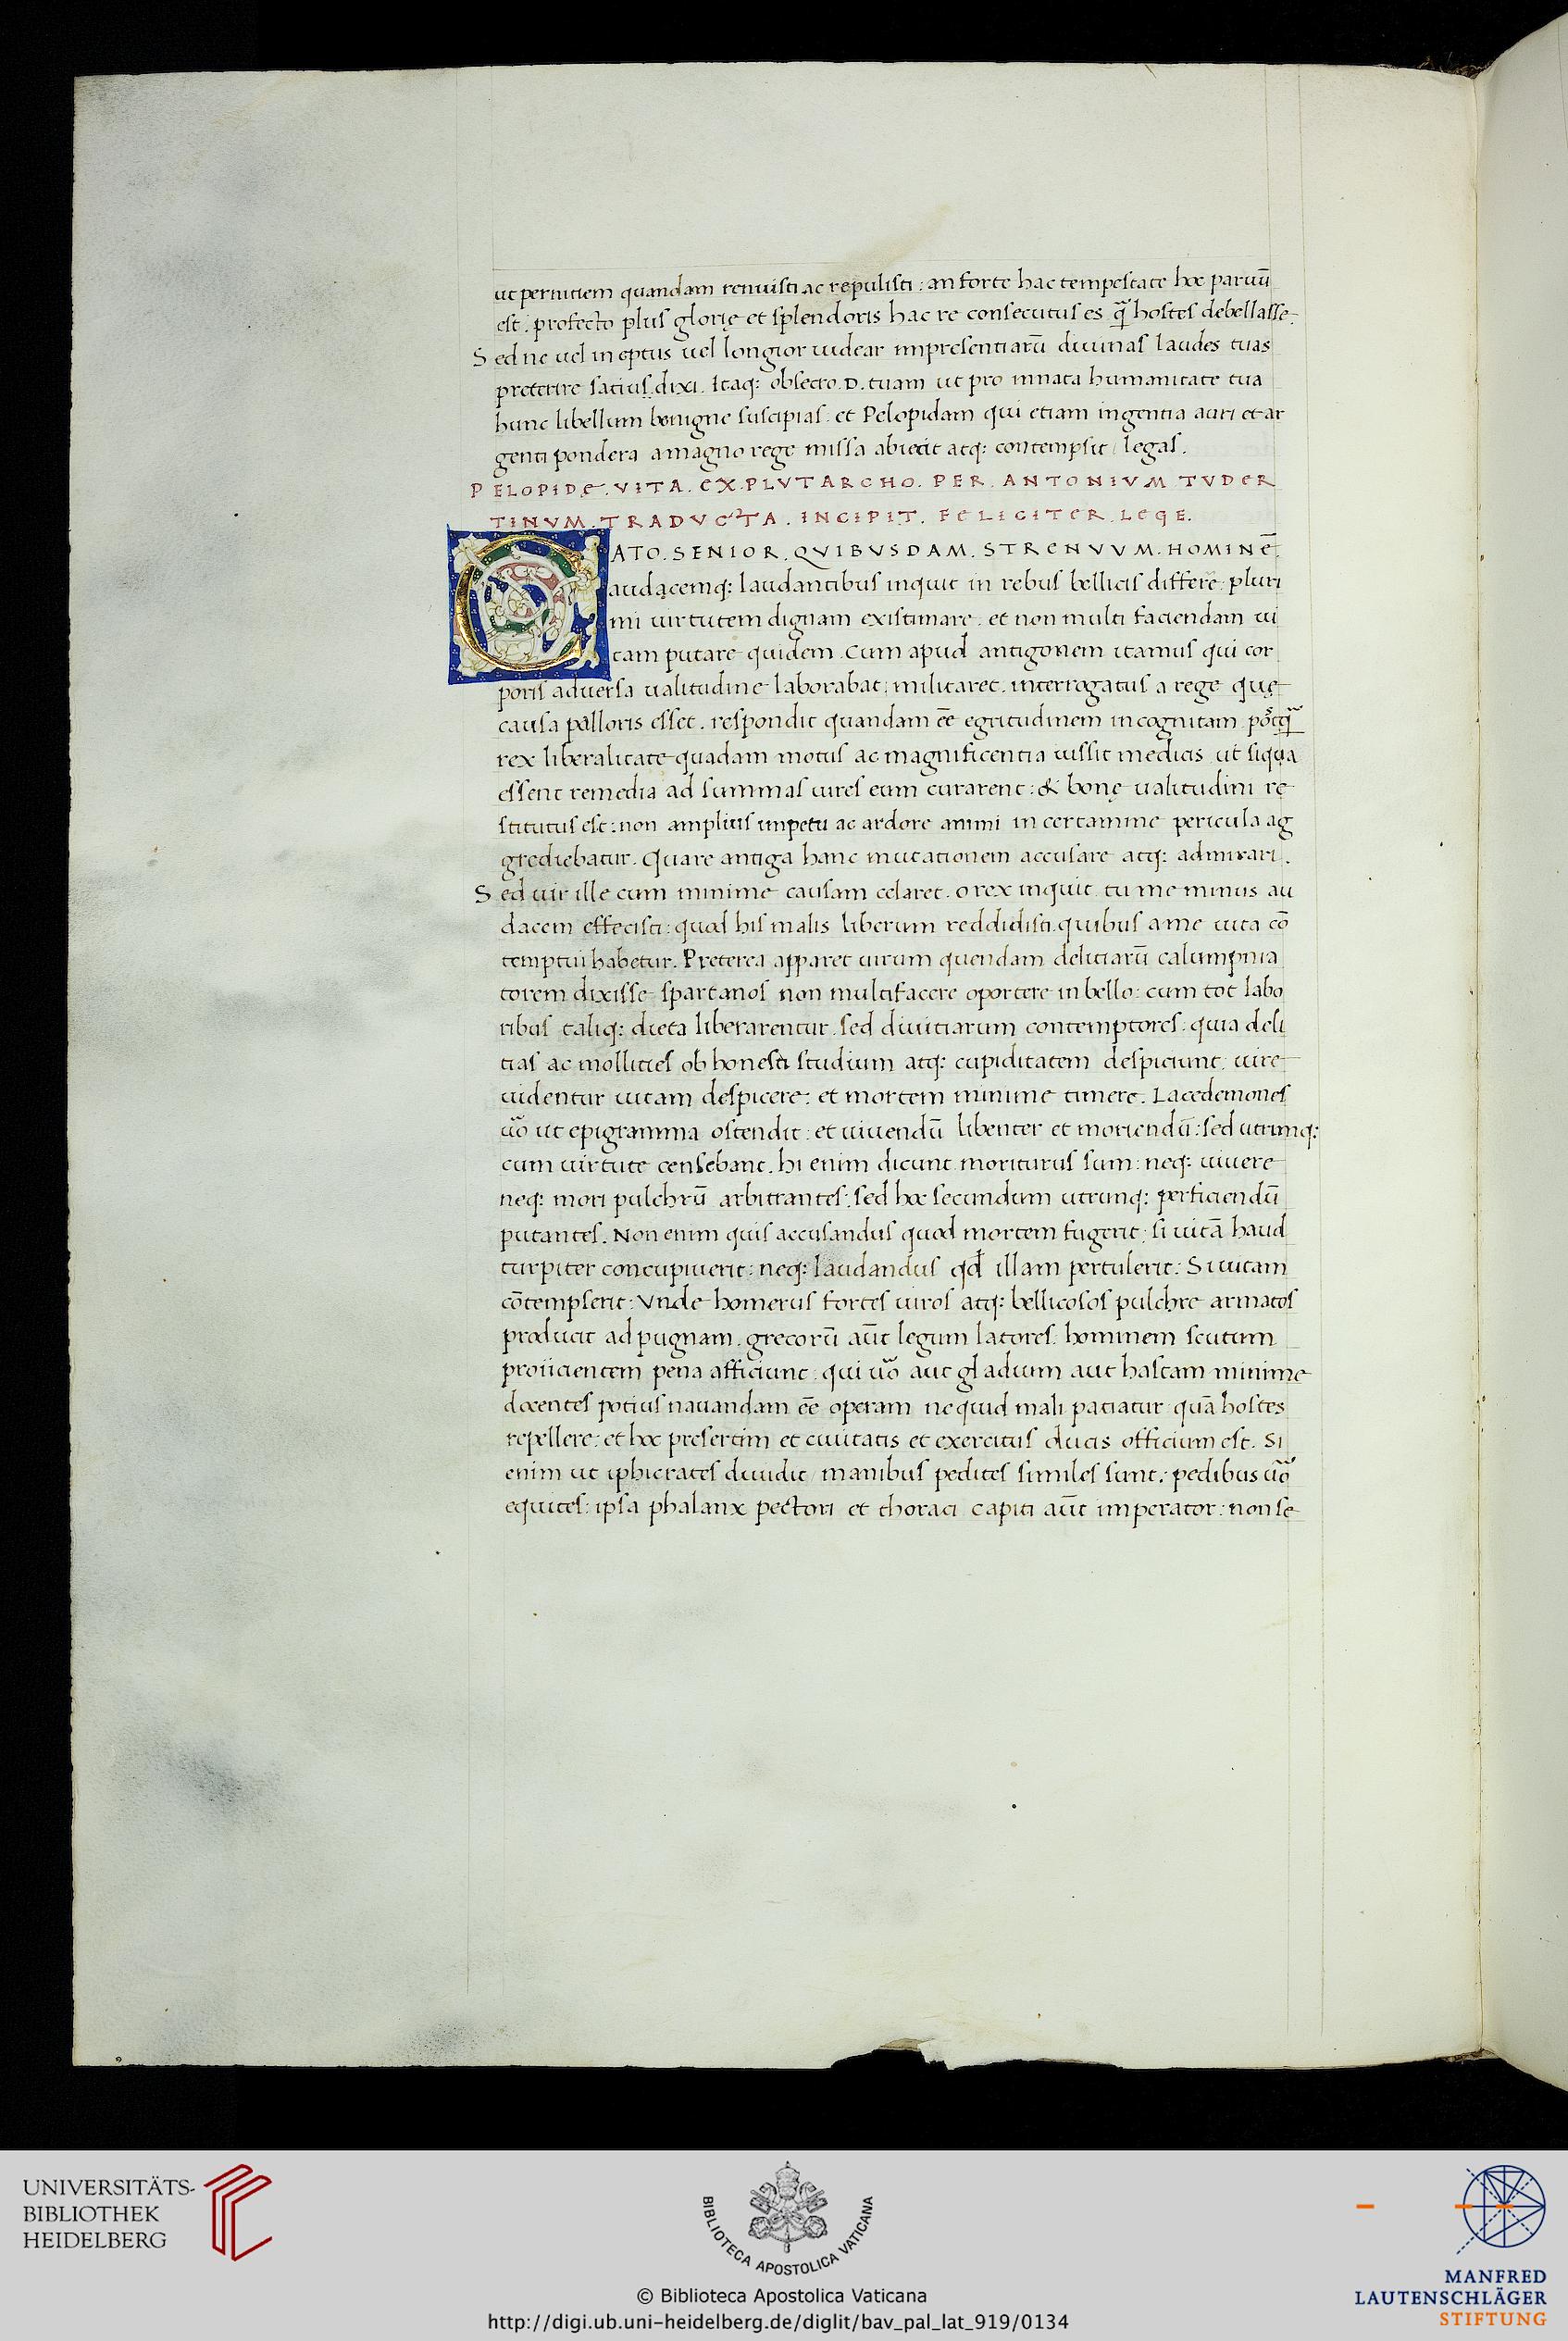 ut pernitiem quandam renuisti ac repulisti : an forte hac tempestate hoc paruū
est . profecto plus glorię et splendoris hac re consecutus es q̄ hostes debellasse .
Sed ne uel ineptus uel longior uidear impresentiarū diuinas laudes tuas
preterire satius dixi . Itaq; obsecro .D. tuam ut pro innata humanitate tua
hunc libellum benigne suscipias . et Pelopidam qui etiam ingentia auri et ar
genti pondera a magno rege missa abiecit atq; contempsit / legas .
PELOPIDę . VITA . EX . PLVTARCHO . PER . ANTONIVM TVDER
TINVM . TRADVCTA . INCIPIT . FELICITER . LEGE .
CATO . SENIOR . QVIBVSDAM . STRENVVM . HOMINĒ
audacemq; laudantibus inquit in rebus bellicis differre : pluri
mi uirtutem dignam existimare . et non multi faciendam ui
tam putare quidem . Cum apud antigonem itamus qui cor
poris aduersa ualitudine laborabat ; militaret . interrogatus a rege quę
causa palloris esset . respondit quandam eē egritudinem incognitam .
rex liberalitate quadam motus ac magnificentia iussit medicis ut siqua
essent remedia ad summas uires eum curarent : & bonę ualitudini re
stitutus est : non amplius impetu ac ardore animi in certamine pericula ag
grediebatur . Quare antiga hanc mutationem accusare atq; admirari .
Sed uir ille cum minime causam celaret . o rex inquit tu me minus au
dacem effecisti : quod his malis liberum reddidisti quibus a me uita cō
temptui habetur . Preterea apparet uirum quendam delitiarū calumpnia
torem dixisse spartanos non multifacere oportere in bello : cum tot labo
ribus taliq; dieta liberarentur . sed diuitiarum contemptores : quia deli
tias ac mollities ob honesti studium atq; cupiditatem despiciunt . uire
uidentur uitam despicere : et mortem minime timere . Lacedemones
uō ut epigramma ostendit : et uiuendū libenter et moriendū : sed utrumq;
cum uirtute censebant . hi enim dicunt moriturus sum : neq; uiuere
neq; mori pulchrū arbitrantes : sed hoc secundum utrunq; perficiendū
putantes . Non enim quis accusandus quod mortem fugerit : si uitā haud
turpiter concupiuerit : neq; laudandus qđ illam pertulerit : Si uitam
cōtempserit : Vnde homerus fortes uiros atq; bellicosos pulchre armatos
producit ad pugnam . grecorū aūt legum latores . hominem scutum
proiicientem pena afficiunt : qui uō aut gladium aut hastam minime
docentes potius nauandam eē operam ne quid mali patiatur quā hostes
repellere : et hoc presertim et ciuitatis et exercitus ducis officium est . Si
enim ut iphicrates diuidit / manibus pedites similes sunt : pedibus uō
equites : ipsa phalanx pectori et thoraci capiti aūt imperator : non se
UNIVERSITÄTS-
BIBLIOTHEK
HEIDELBERG
BIBLIOTECA APOSTOLICA VATICANA
© Biblioteca Apostolica Vaticana
http://digi.ub.uni-heidelberg.de/diglit/bav_pal_lat_919/0134
MANFRED
LAUTENSCHLÄGER
STIFTUNG